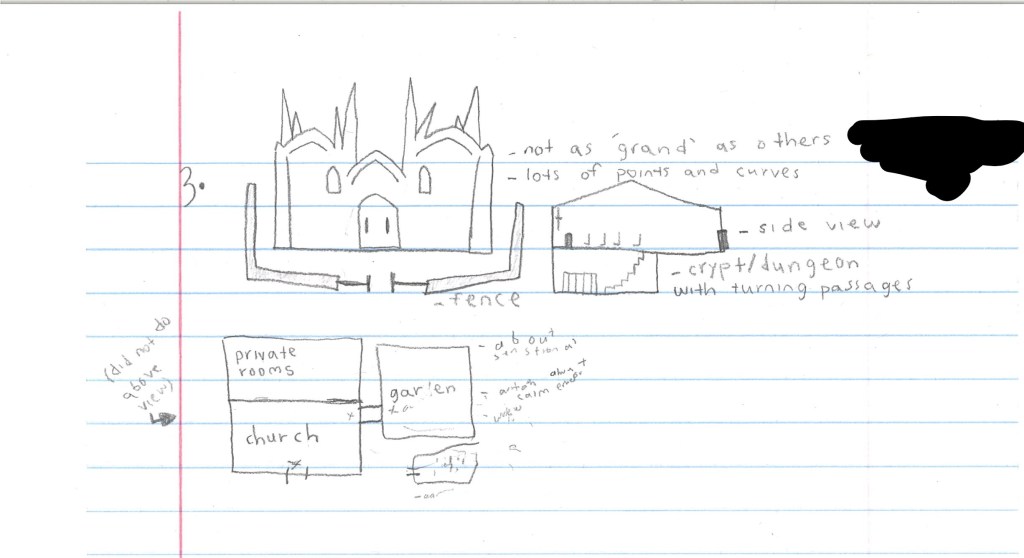 3.
- not as 'grand' as others
- lots of points and curves
- side view
- crypt/dungeon
with turning passages
- fence
(did not do
above
view)
private
rooms
garden
church
- about
calm